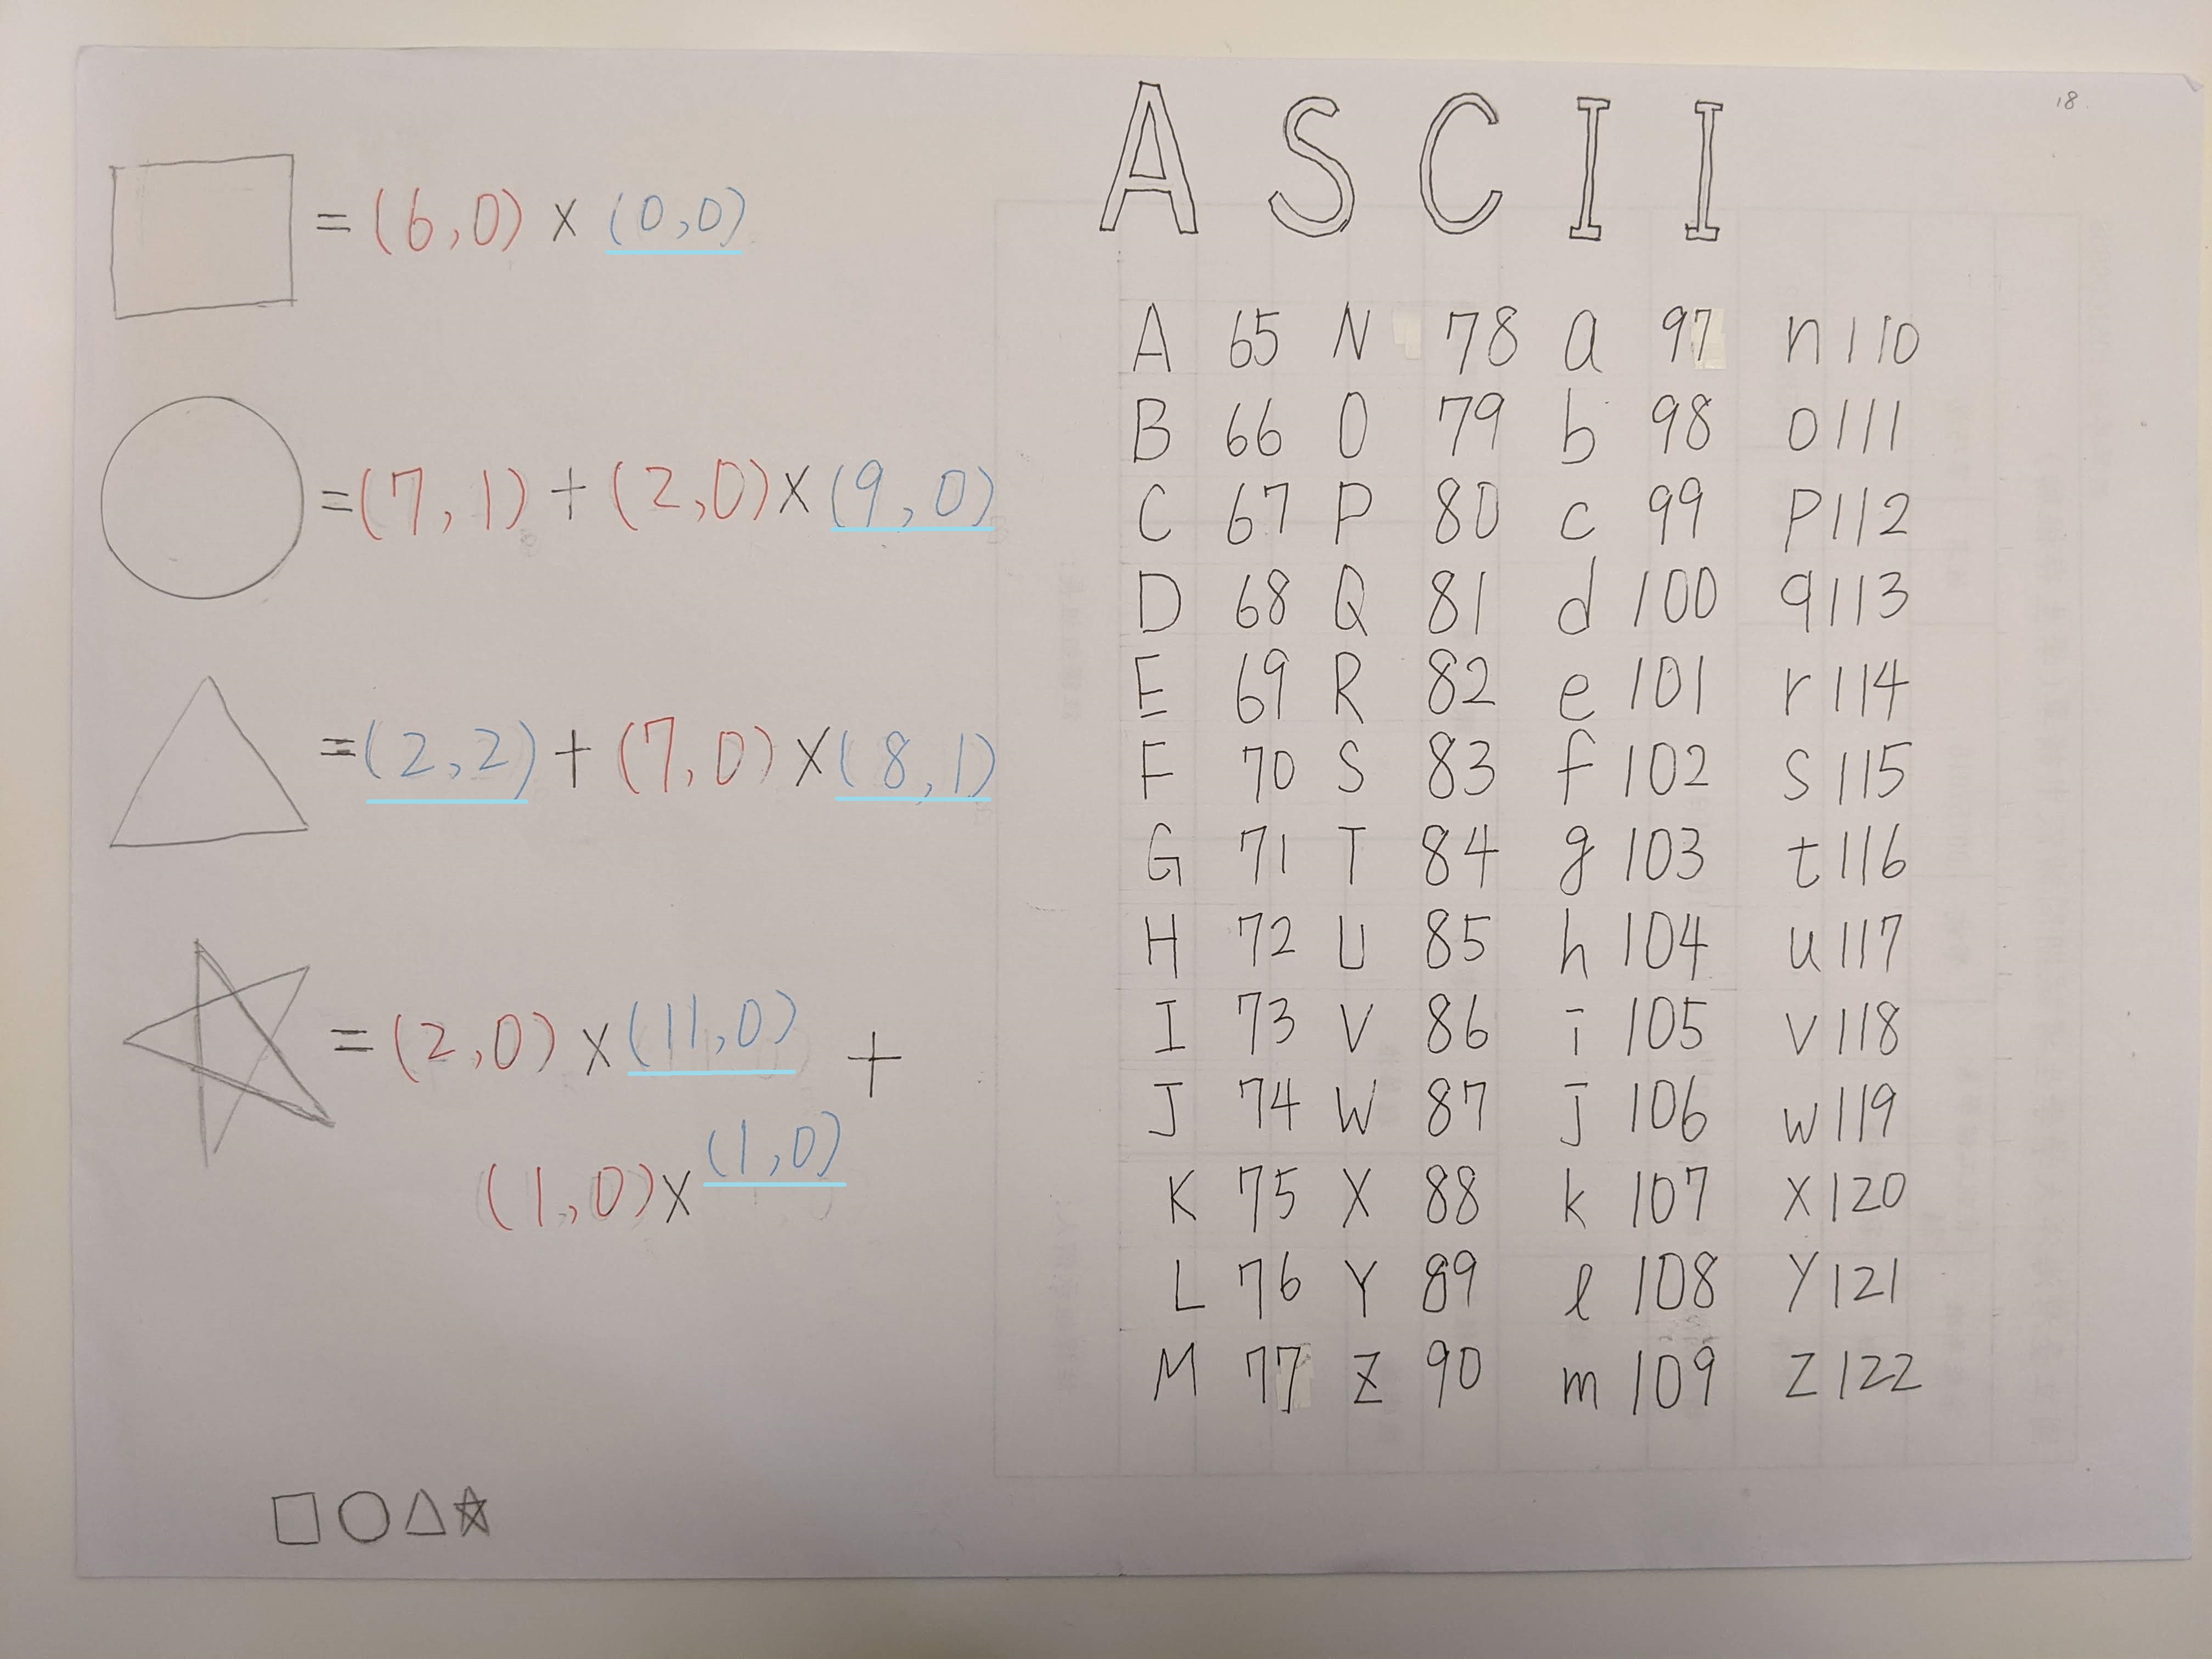 ASCII
18
= (6,0) × (0,0)
= (7,1) + (2,0) × (9,0)
= (2,2) + (7,0) × (8,1)
= (2,0) × (11,0) +
(1,0) × (1,0)
A 65 N 78 a 97 n 110
B 66 O 79 b 98 o 111
C 67 P 80 c 99 p 112
D 68 Q 81 d 100 q 113
E 69 R 82 e 101 r 114
F 70 S 83 f 102 s 115
G 71 T 84 g 103 t 116
H 72 U 85 h 104 u 117
I 73 V 86 i 105 v 118
J 74 W 87 j 106 w 119
K 75 X 88 k 107 x 120
L 76 Y 89 l 108 y 121
M 77 Z 90 m 109 z 122